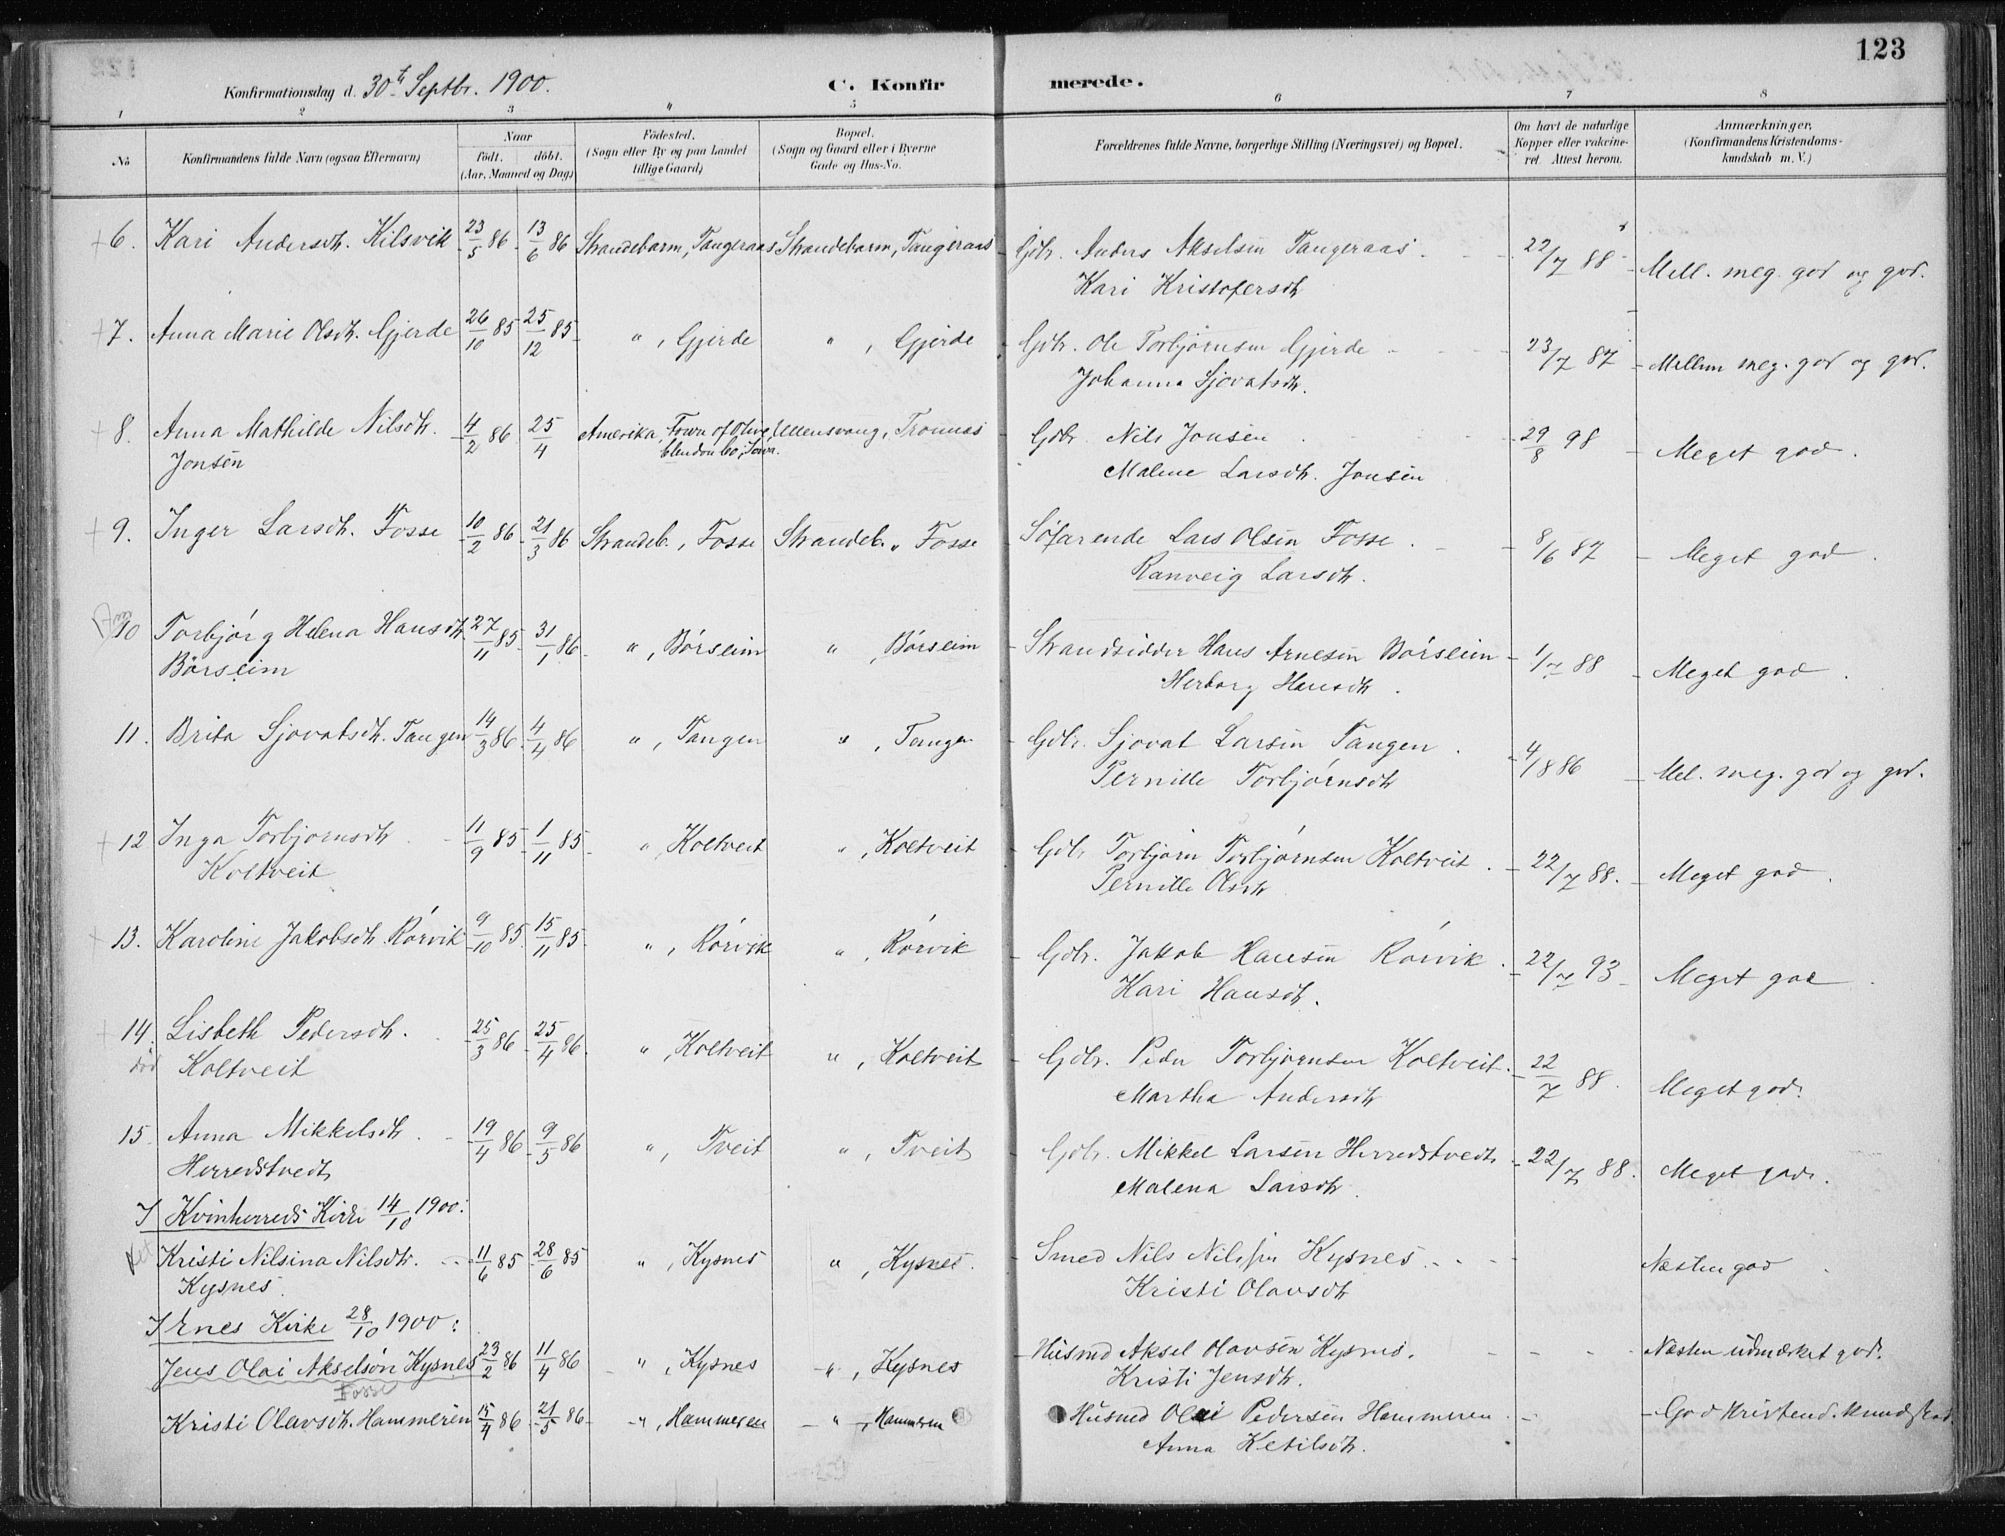 123
Konfirmationsdag d. 30te Septbr. 1900. C. Konfirmerede.
1 2 3 " 5 6 7 8
No Konfirmandens fulde Navn (ogsaa Efternavn) Naar födt. döbt. (Aar, Maaned og Dag) Födested. (Sogn eller By og paa Landet tillige Gaard) Bopæl. (Sogn og Gaard eller i Byerne Gade og Hus-No. Forældrenes fulde Navne, borgerlige Stilling (Næringsvei) og Bopæl. Om havt de naturlige Kopper eller vakcineret. Attest herom. Anmærkninger, (Konfirmandens Kristendomskundskab m. V.)
+ 6. Kari Andersdtr. Kilsvik 23/5 86 13/6 86 Strandebarm, Tangeraas Strandebarm, Tangeraas Gdbr. Anders Akselsen Tangeraas 22/7 88 Mell. meg. god og god.
Kari Kristofersdtr
+ 7. Anna Marie Olsdtr. Gjerde 26/10 85 25/12 85 " , Gjerde " , Gjerde Gdbr. Ole Torbjørnsen Gjerde 23/7 87 Mellem meg. god og god.
Johanna Sjovatsdtr.
+ 8. Anna Mathilde Nilsdtr. 4/2 86 25/4 Amerika, Town of Olive, Ullensvang, Gdbr. Nils Jonsen 29/8 98 Meget god.
Jonsen Co, Iowa. Malene Larsdtr. Jonsen
+ 9. Inger Larsdtr. Fosse 10/2 86 21/3 86 Strandeb., Fosse Strandeb. " Fosse Søfarende Lars Olsen Fosse 8/6 87 Meget god.
Ranveig Larsdtr.
10 Torbjørg Helena Hansdtr. 27/11 85 31/1 86 " , Børseim " , Børseim Strandsidder Hans Arnesen Børseim 1/7 88 Meget god.
Børseim Herborg Hansdtr.
11. Brita Sjovatsdtr. Tangen 14/3 86 4/4 86 " , Tangen " , Tangen Gdbr. Sjovat Larsen Tangen 4/8 86 Mel. meg. god og god.
Pernille Torbjørnsdtr
+ 12 Inga Torbjørnsdtr 11/9 85 1/11 85 " , Koltveit " , Koltveit Gdbr Torbjørn Torbjørnsen Koltveit 22/7 88. Meget god.
Koltveit Pernille Olsdtr.
+ 13. Karoline Jakobsdtr. Rórvik 9/10 85. 15/11 85 " , Rórvik " , Rórvik Gdbr. Jakob Hansen Rórvik 22/7 93 Meget god.
Kari Hansdtr.
+ 14. Lisbeth Pedersdtr. 25/3 86 25/4 86 " , Koltveit " , Koltveit Gdbr. Peder Torbjørnsen Koltveit. 22/7 88. Meget god.
død Koltveit Martha Andersdtr
15. Anna Mikkelsdtr. 19/4 86 9/5 86 " , Tveit " , Tveit Gdbr. Mikkel Larsen Herredstvedt 22/7 88. Meget god.
Herredstvedt Malena Larsdtr.
I Kvinherreds Kirke 14/10 1900:
Kristi Nilsina Nilsdtr. 11/6 85 28/6 85 " , Kysnes " , Kysnes. Smed Nils Nilssen Kysnes Næsten god
Kysnes. Kristi Olavsdtr
I Enes Kirke 28/10 1900:
Jens Olai Akselsøn Kysnes 23/2 86 11/4 86 " , Kysnes " , Kysnes Husmd Aksel Olavsen Kysnes. Næsten udmærket god.
Fosse Kristi Jensdtr.
Kristi Olavsdtr. Hammeren 15/4 86 21/5 86 " , Hammeren " , Hammeren Husmd Olai Pedersen Hammeren God Kristend. kundskab
Anna Ketilsdtr.